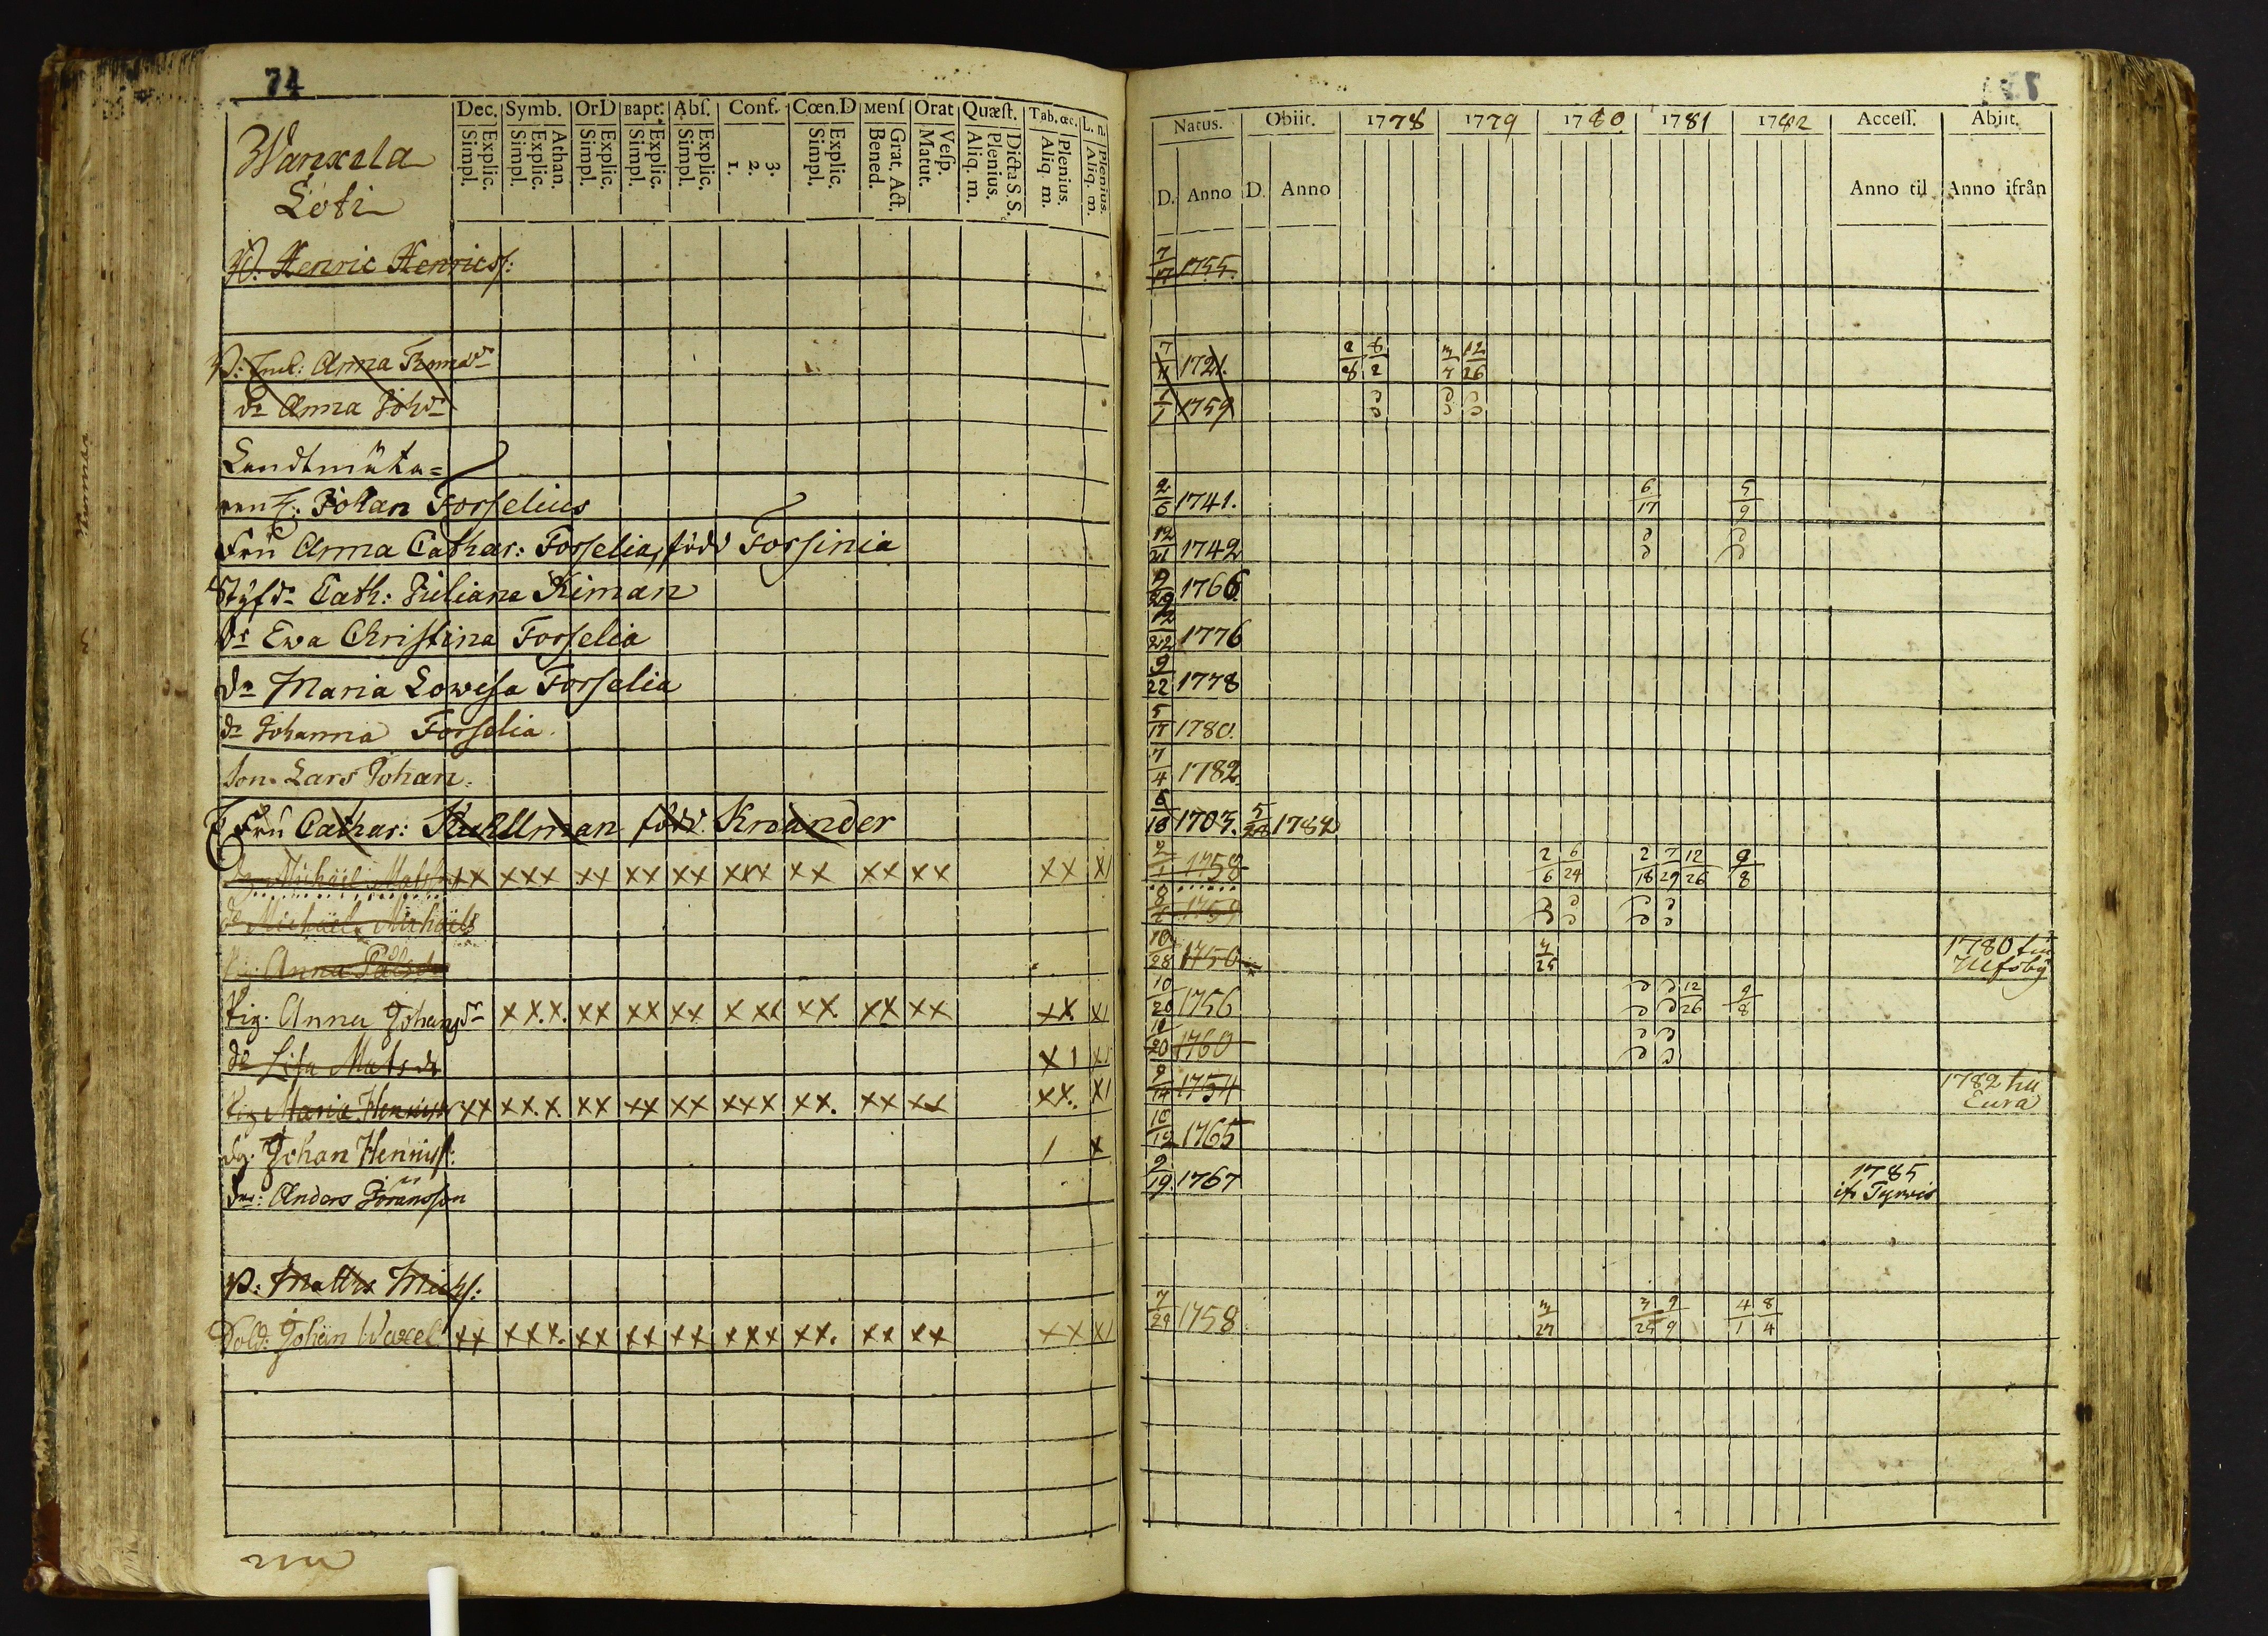 74
Dec. Symb. OrD Bapt. Abſ. Conf. Cœn.D Menſ Orat Quæſt. Tab. œc. L. n.
Explic. Simpl. Athan. Explic. Simpl. Explic. Simpl. Explic. Simpl. Explic. Simpl. 3. 2. 1. Explic. Simpl. Grat. Act. Bened. Veſp. Matut. Dicta S. S. Plenius. Aliq. m. Plenius. Aliq. m. Plenius. Aliq. m.
Natus. Obiit. 1778 1779 1780 1781 1782 Acceſſ. Abiit.
D. Anno D. Anno Anno til Anno ifrån
Wanxela
Löti
Henric Henricsſ: 7/17 1755.
P: Anna 7/11 1721. 2/8 8/2 3/7 12/26
dr Anna Johdr 1759
Landtmäta=
ren H: Johan Forſelius 2/6 1741. 6/17 5/9
Fru Anna Cathar: Forſelia, född Forſinia 12/21 1742
Styfdr Cath: Juliana Kiman 9/29 1766
dr Ewa Christina Forſelia 12/22 1776
dr Maria Lowiſa Forſelia 9/22 1778
dr Johanna Forſelia 5/17 1780.
Son. Lars Johan. 7/4 1782
Fru Cathar: Kuhllman född Knander 1703. 5/28 1782
Michäel Matsſ xx xxx xx xx xx xxx xx xx xx xx x1 1758 2/6 6/24 2/18 7/29 12/26 9/8
de Michäel Michäels 1759
Pig. Anna Pålsdr 10/28 1750 3/25 1780 till
Ulfsby
Pig. Anna Johansdr xx.x. xx xx xx x xx xx xx xx xx x1 10/20 1756 12/26 9/8
de Lisa Matsdr x1 1760
Pig Maria Henricsdr xx xx.x xx xx xx xxx xx. xx xx xx. x1 9/14 1754 1782 till
Eura
dg. Johan Henriſſ: 1 x 10/12 1765
dr: Anders Göransſon 9/19 1767 1785
ifr Tyrvis
P: Matths Michſ:
Sold: Johan Waxel xx xxx. xx xx xx xxx xx. xx xx xx x1 7/29 1758 3/27 3/25 9/9 4/1 8/4